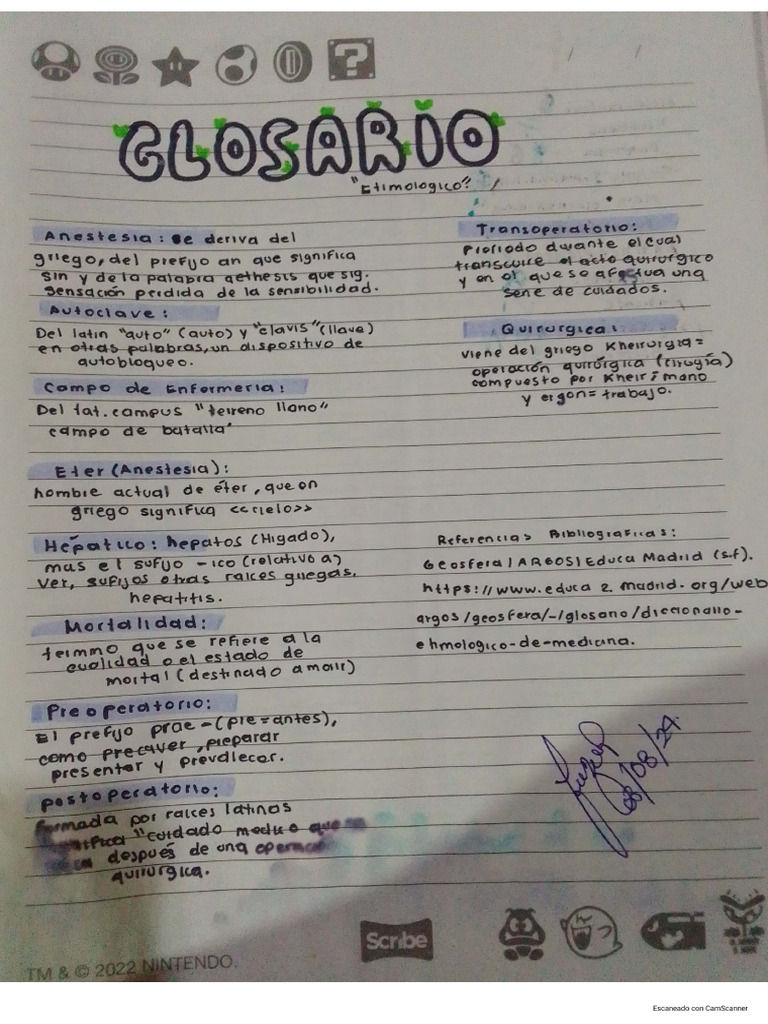 GLOSARIO
"Etimologico".
Anestesia: se deriva del
griego, del prefijo an que significa
sin y de la palabra aethesis que sig.
sensación perdida de la sensibilidad.
Autoclave:
Del latin "auto" (auto) y "clavis" (llave)
en otras palabras, un dispositivo de
autobloqueo.
Campo de Enfermeria:
Del lat. campus "terreno llano"
campo de batalla"
Eter (Anestesia):
nombre actual de éter, que en
griego significa <<cielo>>
Hépatico: hepatos (Higado),
mas el sufijo -ico (relativo a)
Ver, sufijos otras raíces griegas,
hepatitis.
Mortalidad:
termino que se refiere a la
cualidad o el estado de
mortal (destinado a morir)
Preoperatorio:
El prefijo prae-(pre=antes),
como precaver, preparar
presentar y prevalecer.
postoperatorio:
formada por raíces latinas
"cuidado medico que
después de una
quirurgica.
Transoperatorio:
Periodo durante el cual
transcurre el acto quirúrgico
y en el que se afectua una
serie de cuidados.
Quirurgica:
viene del griego Kheirurgia=
operación quirúrgica (cirugía)
compuesto por Kheir= mano
y ergon= trabajo.
Referencias Bibliograficas:
Geosfera/ARGOS/Educa Madrid (s.f).
https://www.educa2.madrid.org/web
argos/geosfera/-/glosario/diccionario-
etimologico-de-medicina.
08/08/24
Scribe
TM & © 2022 NINTENDO.
Escaneado con CamScanner